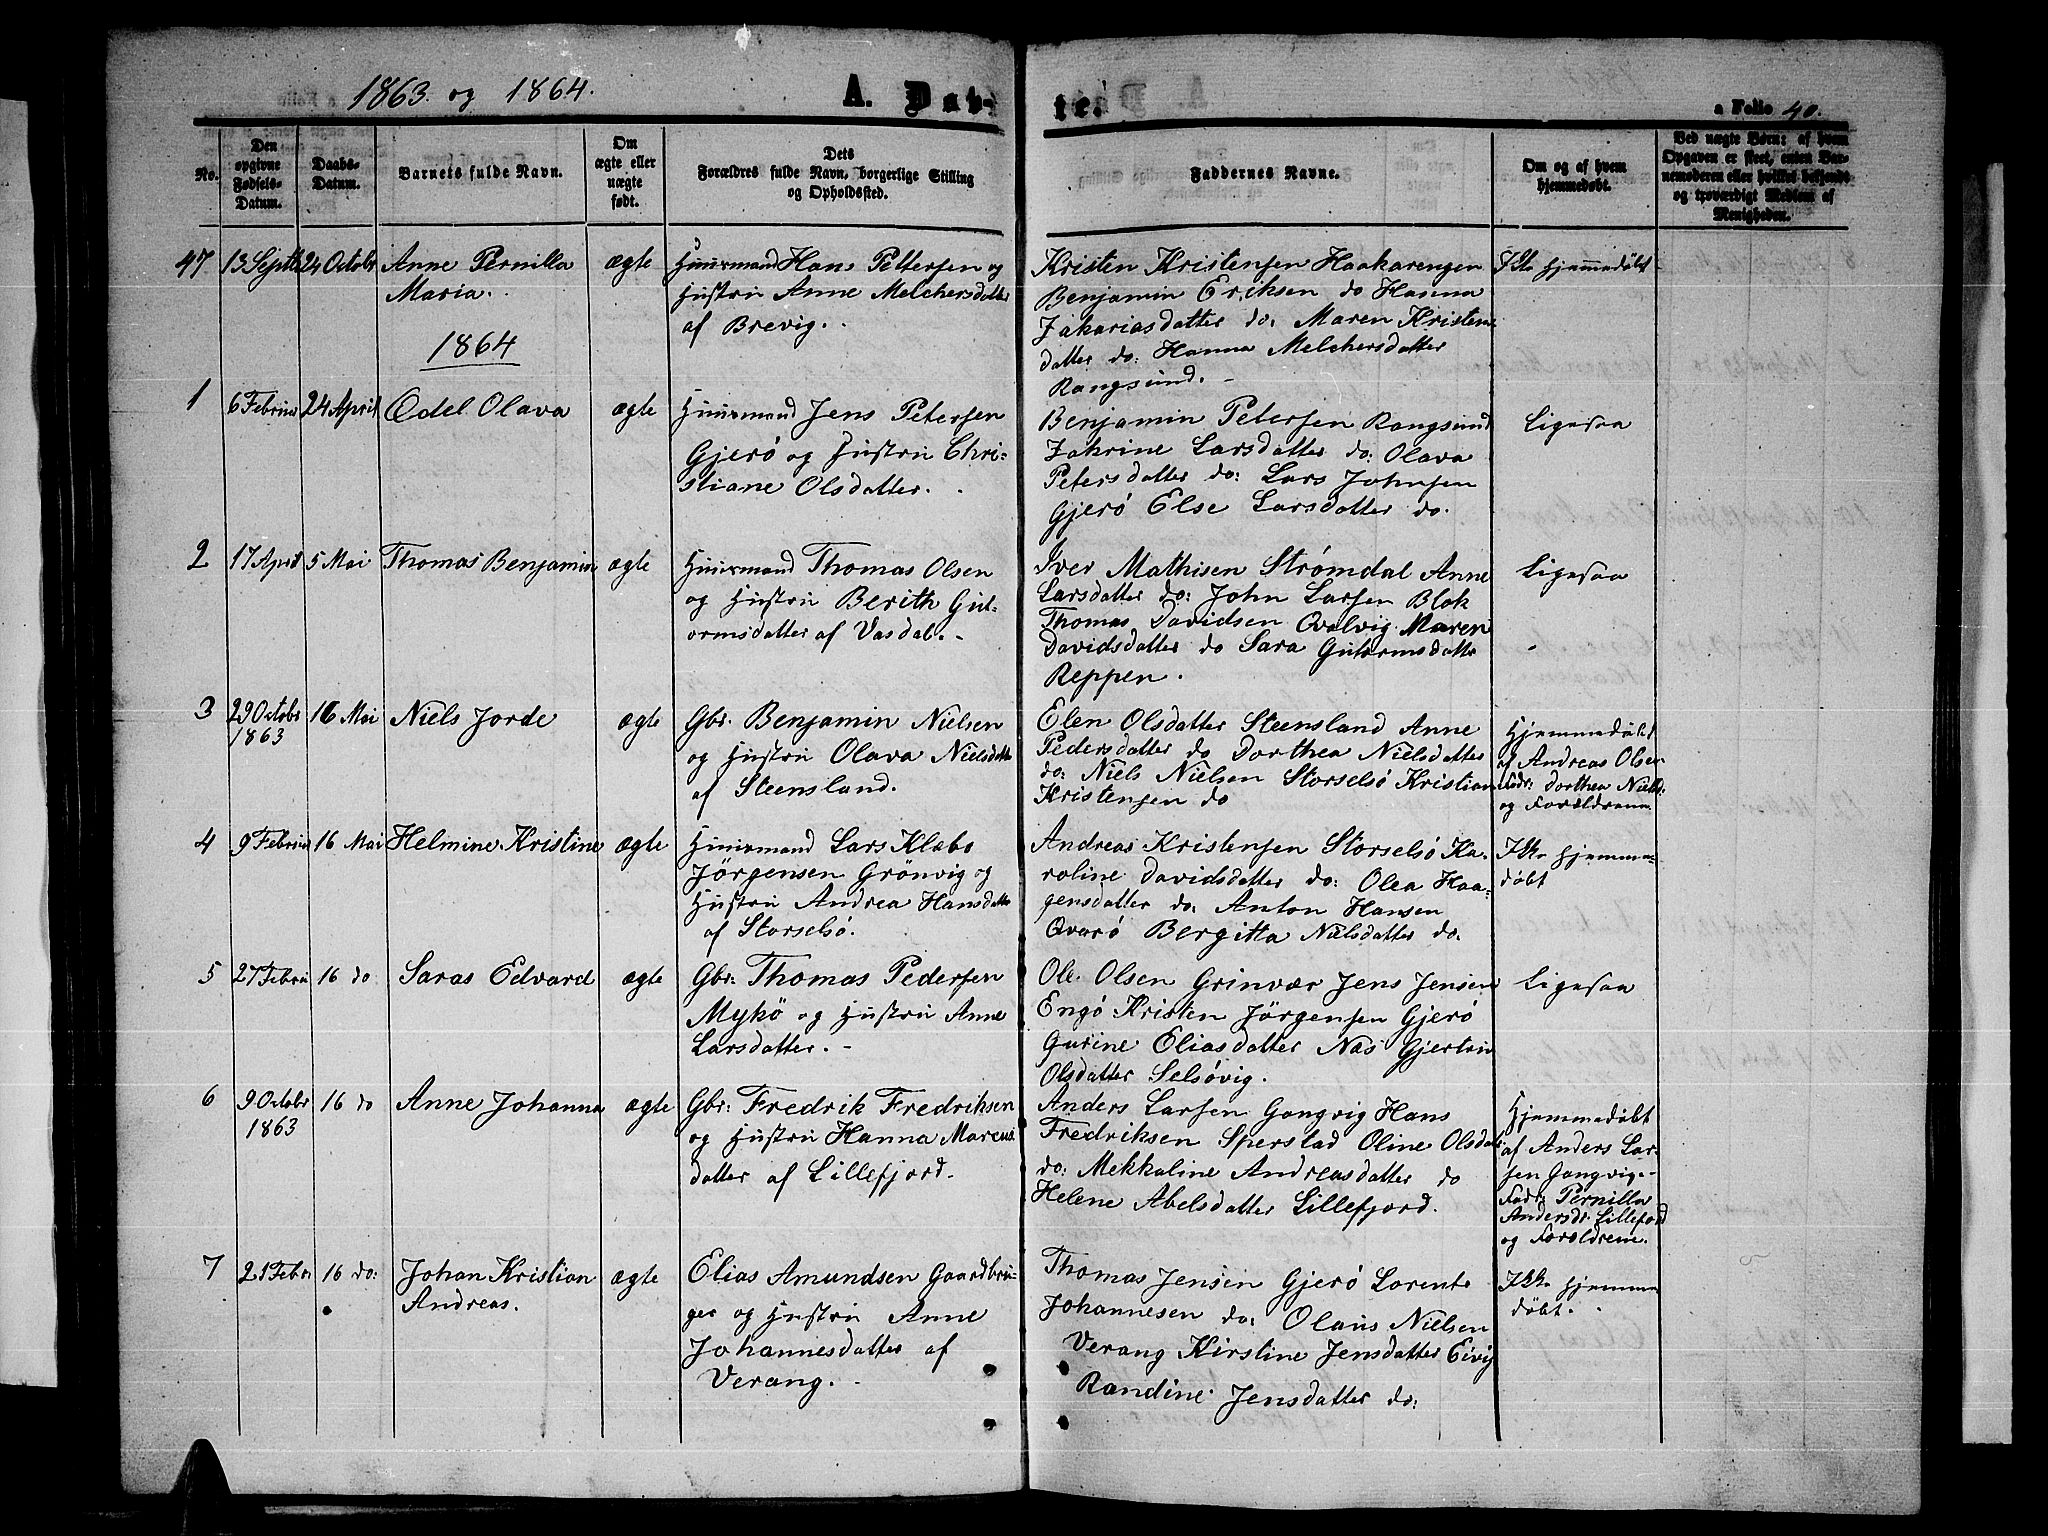 1863 og 1864.
A. Døb-
te.
a Folio 40.
No.
Den
opgivne
Fødsels-
Datum.
Daabs-
Datum.
Barnets fulde Navn.
Om
ægte eller
uægte
født.
Dets
Forældres fulde Navn, borgerlige Stilling
og Opholdssted.
Faddernes Navne.
Om og af hvem
hjemmedøbt.
Ved uægte Børn: af hvem
Opgaven er skeet, enten Bar-
nemoderen eller hvilket bekjendt
og troværdigt Medlem af
Menigheden.
47
13 Septb
24 Octobr
Anne Pernilla
Maria.
ægte
Huusmand Hans Pettersen og
Hustru Anne Melchersdatter
af Brevig.
Kristen Kristensen Haakarengen
Benjamin Eriksen do Hanna
Zakariasdatter do: Maren Kristens
datter do: Hanna Melchersdatter
Rangsund.
Ikke hjemmedøbt
1864
1
6 Februar
24 April
Edel Olava
ægte
Huusmand Jens Petersen
Gjerö og Hustru Chri-
stiane Olsdatter.
Benjamin Petersen Rangsund
Zakrine Larsdatter do: Olava
Petersdatter do: Lars Johnsen
Gjerö Else Larsdatter do.
Ligesaa
2
17 April
5 Mai
Thomas Benjamin
ægte
Huusmand Thomas Olsen
og Hustru Berith Gut-
ormsdatter af Vasdal.
Iver Mathisen Strømdal Anne
Larsdatter do: John Larsen Blok
Thomas Davidsen Qvalvig Maren
Davidsdatter do Sara Gutormsdatter
Reppen.
Ligesaa
3
29 Octobr
1863
16 Mai
Niels Jorde
ægte
Gbr: Benjamin Nielsen
og Hustru Olava Nielsdatter
af Steensland.
Elen Olsdatter Steensland Anne
Pedersdatter do Dorthea Nielsdatter
do: Niels Nielsen Storselsö Kristian
Kristensen do
Hjemmedøbt
af Andreas Olsen
Fadr: Dorthea Niels:
og Forældrene
4
9 Februar
16 Mai
Helmine Kristine
ægte
Huusmand Lars Klæbo
Jörgensen Grönvig og
Hustru Andrea Hansdatter
af Storselsö.
Andreas Kristensen Storselsö Ka-
roline Davidsdatter do: Olea Haa-
gensdatter do: Anton Hansen
Qvarö Bergitta Nielsdatter do.
Ikke hjemme-
døbt
5
27 Februar
16 do
Saras Edvard
ægte
Gbr: Thomas Pedersen
Mykö og Hustru Anne
Larsdatter.
Ole Olsen Grinvær Jens Jensen
Engö Kristen Jörgensen Gjerö
Gurine Eliasdatter Nas Gjertrui
Olsdatter Selsövig.
Ligesaa
6
9 Octobr
1863
16 do
Anne Johanna
ægte
Gbr: Fredrik Fredriksen
og Hustru Hanna Marcus
datter af Lillefjord.
Anders Larsen Gangvig Hans
Fredriksen Sperstad Oline Olsdatter
do: Mekkaline Andreasdatter do
Helene Abelsdatter Lillefjord.
Hjemmedøbt
af Anders Lar-
sen Gangvig.-
Fadr: Pernilla
Andersdr. Lillefjord
og Forældrene.
7
21 Febr
16 do:
Johan Kristian
Andreas.
ægte
Elias Amundsen Gaardbru-
ger og Hustru Anne
Johannesdatter af
Verang.
Thomas Jensen Gjerö Lorents
Johannesen do: Olaus Nielsen
Verang Kirstine Jensdatter Eivig
Randine Jensdatter do:
Ikke hjemme
døbt.